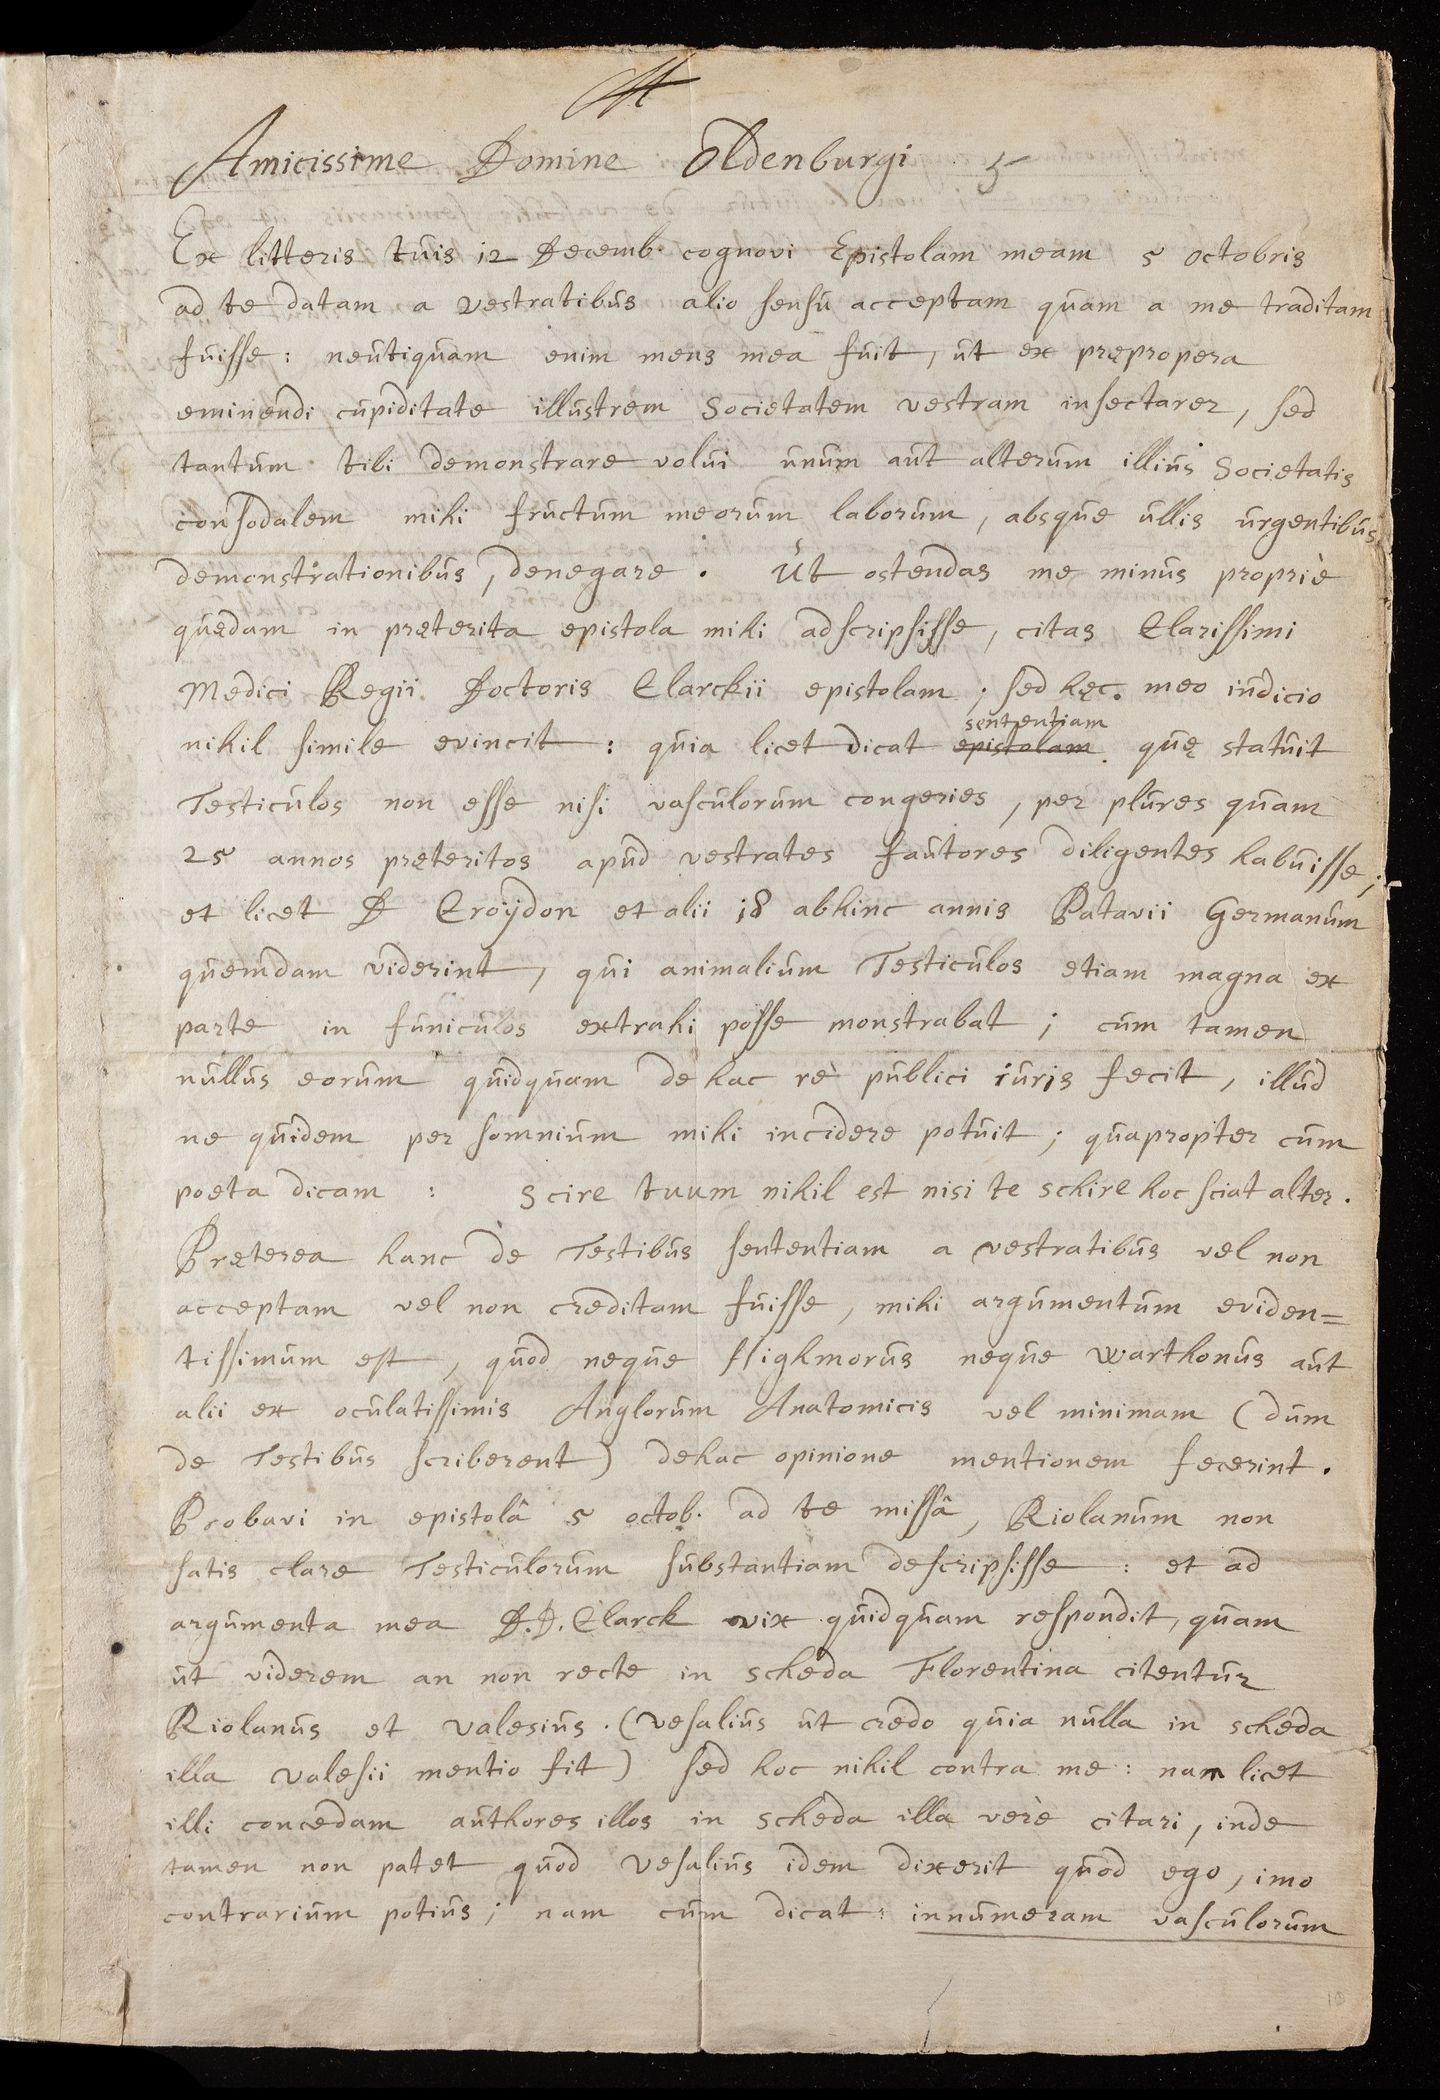 Amicissime Domine Oldenburgi 5
Ex litteris tuis 12 Decemb. cognovi Epistolam meam 5 octobris
ad te datam a vestratibus alio sensu acceptam quam a me traditam
fuisse: neutiquam enim mens mea fuit, ut ex prępropera
eminendi cupiditate illustrem Societatem vestram insectarer, sed
tantum tibi demonstrare volui unum aut alterum illius Societatis
consodalem mihi fructum meorum laborum, absque ullis urgentibus
demonstrationibus, denegare. Ut ostendas me minus propriè
quędam in pręterita epistola mihi adscripsisse, citas Clarissimi
Medici Regii Doctoris Clarckii epistolam; sed hęc meo iudicio
nihil simile evincit: quia licet dicat epistolam sententiam quę statuit
Testiculos non esse nisi vasculorum congeries, per plures quam
25 annos pręteritos apud vestrates fautores diligentes habuisse;
et licet D Croijdon et alii 18 abhinc annis Patavii Germanum
quemdam viderint, qui animalium Testiculos etiam magna ex
parte in funiculos extrahi posse monstrabat; cum tamen
nullus eorum quidquam de hac re publici iuris fecit, illud
ne quidem per somnium mihi incidere potuit; quapropter cum
poeta dicam: Scire tuum nihil est nisi te schire hoc sciat alter.
Pręterea hanc de Testibus sententiam a vestratibus vel non
acceptam vel non creditam fuisse, mihi argumentum eviden=
tissimum est, quod neque Highmorus neque Warthonus aut
alii ex oculatissimis Anglorum Anatomicis vel minimam (dum
de Testibus scriberent) dehac opinione mentionem fecerint.
Probavi in epistolâ 5 octob. ad te missâ, Riolanum non
satis clare Testiculorum substantiam descripsisse: et ad
argumenta mea D.D. Clarck vix quidquam respondit, quam
ut viderem an non recte in scheda Florentina citentur
Riolanus et Valesius. (Vesalius ut credo quia nulla in scheda
illa Valesii mentio fit) sed hoc nihil contra me: nam licet
illi concedam authores illos in scheda illa verè citari, inde
tamen non patet quod Vesalius idem dixerit quod ego, imo
contrarium potius; nam cum dicat: innumeram vasculorum